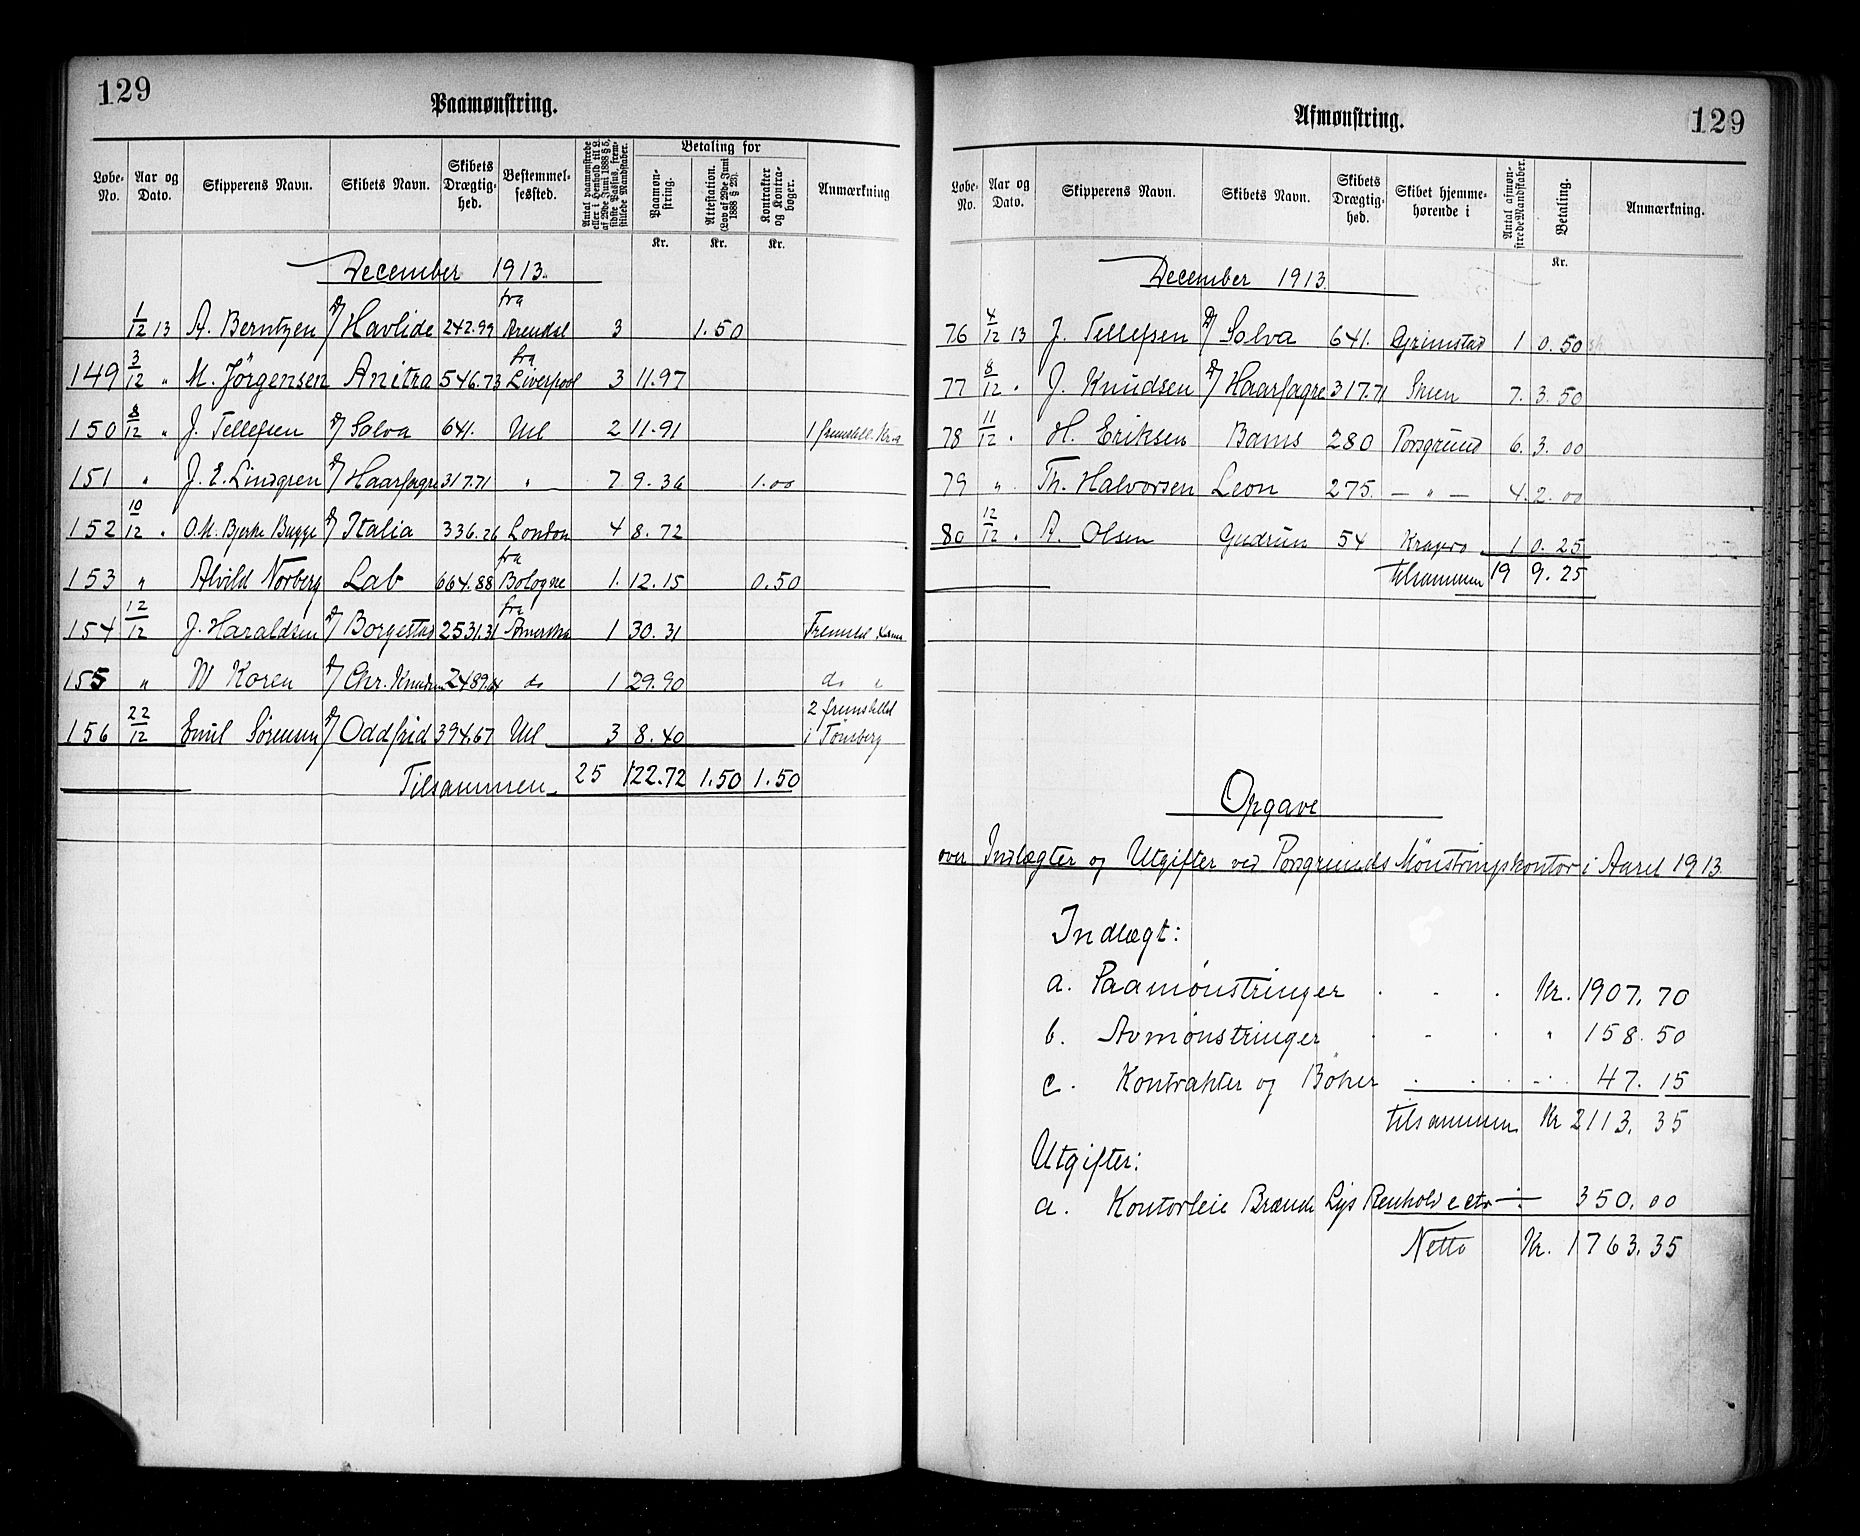 129
Paamønstring.
Løbe-No. Aar og Dato. Skipperens Navn. Skibets Navn. Skibets Drægtighed. Bestemmelsessted. Antal paamønstrede eller i Henhold til L. af 29de Juni 1888 § 5, sidste Passus, fremstillede Mandskaber. Betaling for Paamønstring. Attestation. (Lov af 29de Juni 1888 § 23). Kontrakter og Kontrabøger. Anmærkning
Kr. Kr. Kr.
December 1913.
1/12 13 A. Berntzen D/ Havlide 242.99 fra Arendal 3 1.50
149 3/12 " M. Jörgensen Anitra 546.73 fra Liverpool 3 11.97
150 8/12 " J. Tellefsen D/ Salva 641. Uel 2 11.91 1 fremstill. Kr.a
151 " J. E. Lindgren D/ Haarfagre 317.71 " 7 9.36 1.00
152 10/12 " O. M. Bjerke Bugge D/ Italia 336.26 London 4 8.72
153 " Alvild Norberg Lab 664.88 fra Bologne 1. 12.15 0.50
154 12/12 J. Haraldsen D/ Borgestad 2531.31 fra Amerika 1 30.31
155 " W Koren D/ Chr. Knudsen 2489.64 do 1 29.90 do
156 22/12 Emil Sörensen D/ Oddfrid 394.67 Uel 3 8.40 2 fremstillet i Tönsberg
Tilsammen 25 122.72 1.50 1.50
129
Afmønstring.
Løbe-No. Aar og Dato. Skipperens Navn. Skibets Navn. Skibets Drægtighed. Skibet hjemmehørende i Antal afmønstrede Mandskaber. Betaling. Anmærkning.
Kr.
December 1913.
76 4/12 13 J. Tellefsen D/ Salva 641. Grimstad 1 0.50
77 8/12 " J. Knudsen D/ Haarfagre 317.71 Skien 7. 3.50
78 11/12 " H. Eriksen Bams 280 Porsgrund 6. 3.00
79 " Th. Halvorsen Leon 275. — " — 4. 2.00
80 12/12 " A. Olsen Gudrun 54 Kragerø 1 0.25
tilsammen 19 9.25
Opgave
over Indtægter og Utgifter ved Porsgrunds Mönstringskontor i Aaret 1913.
Indtægt:
a. Paamønstringer Kr. 1907,70
b. Avmønstringer " 158.50
c. Kontrakter og Böker 47.15
tilsammen Kr 2113.35
Utgifter:
a. Kontorleie Brænde Lys Renhold etc ÷ 350.00
Netto Kr. 1763.35